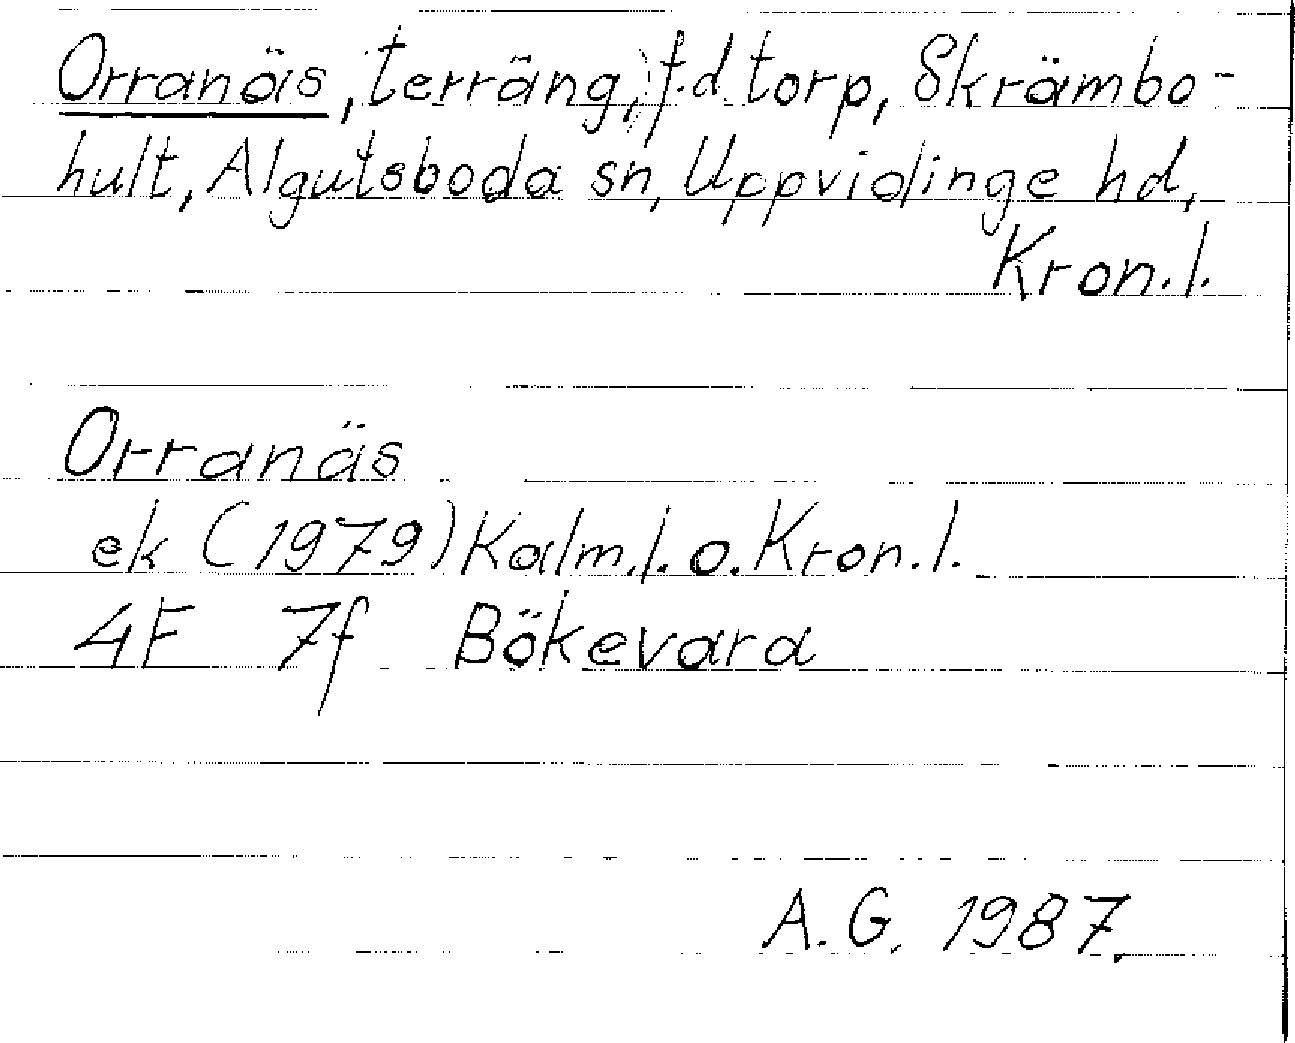 Orranäs, terräng, f.d. torp, Skrämbo-
hult, Algutsboda sn, Uppvidinge hd,
Kron.l.
Orranäs
ek (1979) Kalm.l. o. Kron.l.
4F 7f Bökevara
A.G. 1987.